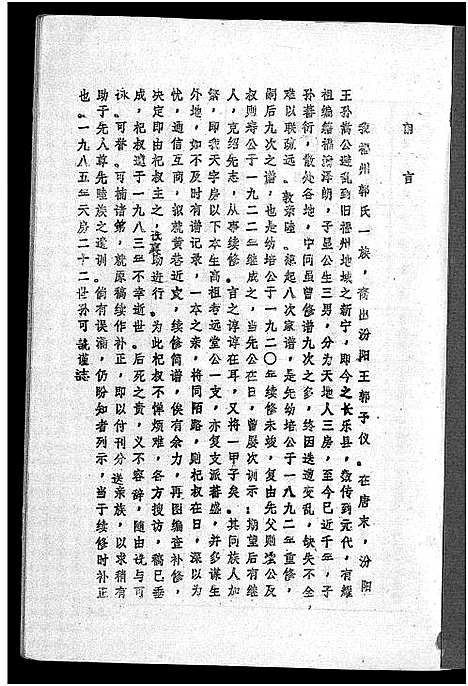 前言
我福州郭氏一族，裔出汾阳王郭子仪。在唐末，汾阳
王孙嵩公避乱到旧福州地域之新宁，即今之长乐县，数传到元代，有耀
祖编籍福清泽朗，子显公生三男，分为天地人三房，至今已近千年，子
孙蕃衍，散处各地，中间虽曾修谱九次之多，终因迭遭变乱，缺失不全，
难以联疏远。敦亲睦。缘起八次家谱，是先幼培公于一八九二年重修，
嗣后九次之谱，也是幼培公于一九二〇年续修未竣，复由先父则澐公及
叔则培公于一九二二年继成之，当先公在日，曾屡次训示：期望后有继
人，克绍先志，从事续修。言之谆谆在耳，又将一甲子矣。其间族人加
繁，即我天字房以下本生高祖考远堂公一支，亦复支派蕃盛，并多谋生
外地，如不及时有谱记录，一本之亲，将同陌路，则杞叔在日，深以为
忧，通信互商，拟就黄巷近支，续修简谱，俟有余力，再图编查补修，
决定即由杞叔主之，诜襄助进行。为此杞叔不惮烦难，各方搜访，稿已垂
成，杞叔遽于一九八三年不幸逝世。后死之责，义不容辞，随由诜与可
咏。可督。可掎诸弟，就原稿续作补正，即以付刊分送亲族，以求稍有
助于先人尊先睦族之遗训。倘有误漏，仍盼知者列示，当于续修时补正
也。一九八五年天房二十二世孙可诜谨志